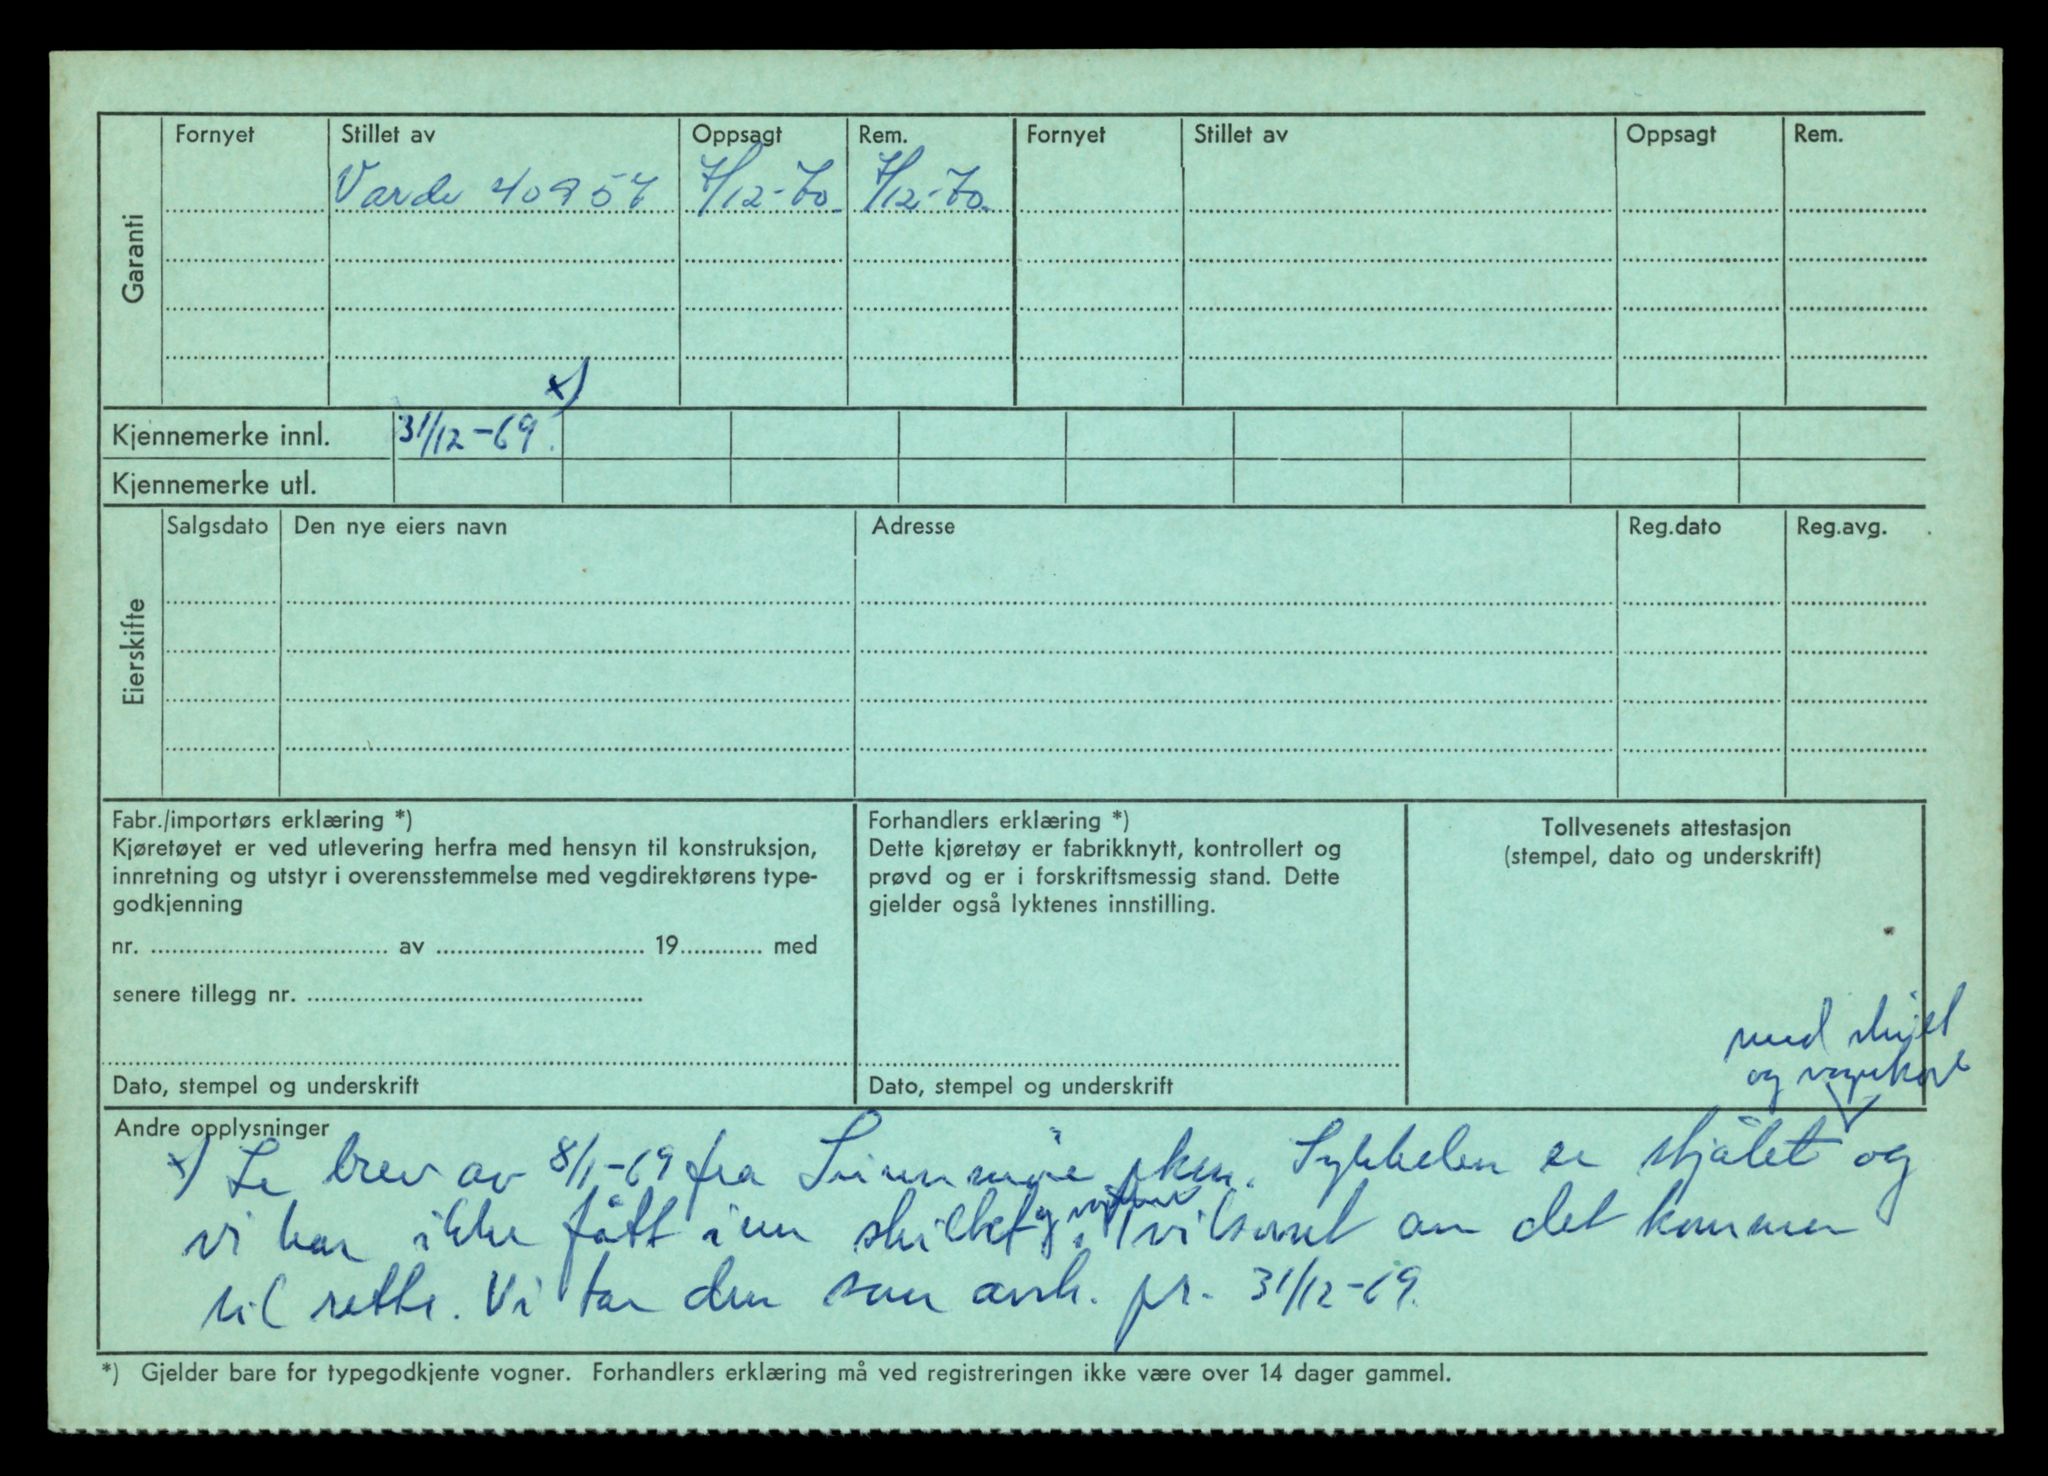 Garanti
Fornyet Stillet av Oppsagt Rem. Fornyet Stillet av Oppsagt Rem.
Varde 40957 7/12-70. 7/12-70.
x)
Kjennemerke innl. 31/12-69.
Kjennemerke utl.
Eierskifte
Salgsdato Den nye eiers navn Adresse Reg.dato Reg.avg.
Fabr./importørs erklæring *)
Kjøretøyet er ved utlevering herfra med hensyn til konstruksjon,
innretning og utstyr i overensstemmelse med vegdirektørens type-
godkjenning
nr. .......... av .......... 19.......... med
senere tillegg nr. ..........
Dato, stempel og underskrift
Forhandlers erklæring *)
Dette kjøretøy er fabrikknytt, kontrollert og
prøvd og er i forskriftsmessig stand. Dette
gjelder også lyktenes innstilling.
Dato, stempel og underskrift
Tollvesenets attestasjon
(stempel, dato og underskrift)
med skilt
og vognkort
Andre opplysninger
x) Se brev av 8/1-69 fra Sunnmøre pkm. Sykkelen er stjålet og
vi har ikke fått inn skiltet og vognkort. Tvilsomt om det kommer
til rette. Vi tar den som avsk. pr. 31/12-69.
*) Gjelder bare for typegodkjente vogner. Forhandlers erklæring må ved registreringen ikke være over 14 dager gammel.